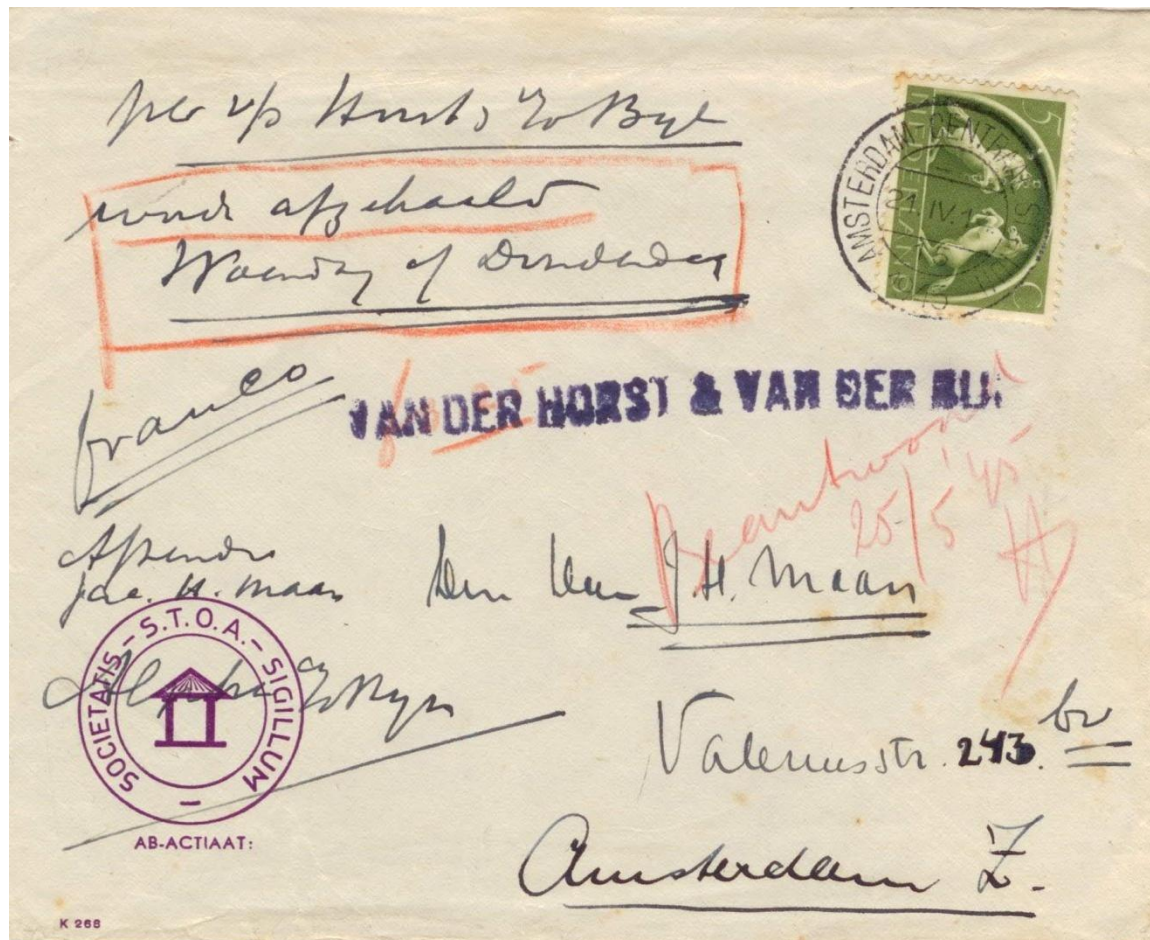 per
wordt afgehaald
Woensdag of Donderdag
AMSTERDAM-CENTRAAL
21.IV.1
NEDERLAND
5 C
franco
VAN DER HORST & VAN DER BIJL
Beantwoord
25/5 '45
Afzender
Jac. H. Maan
Den Heer J.H. Maan
Alphen
SOCIETATIS - S.T.O.A. - SIGILLUM -
AB-ACTIAAT:
Valeriusstr. 243. bv
Amsterdam Z.
K 268